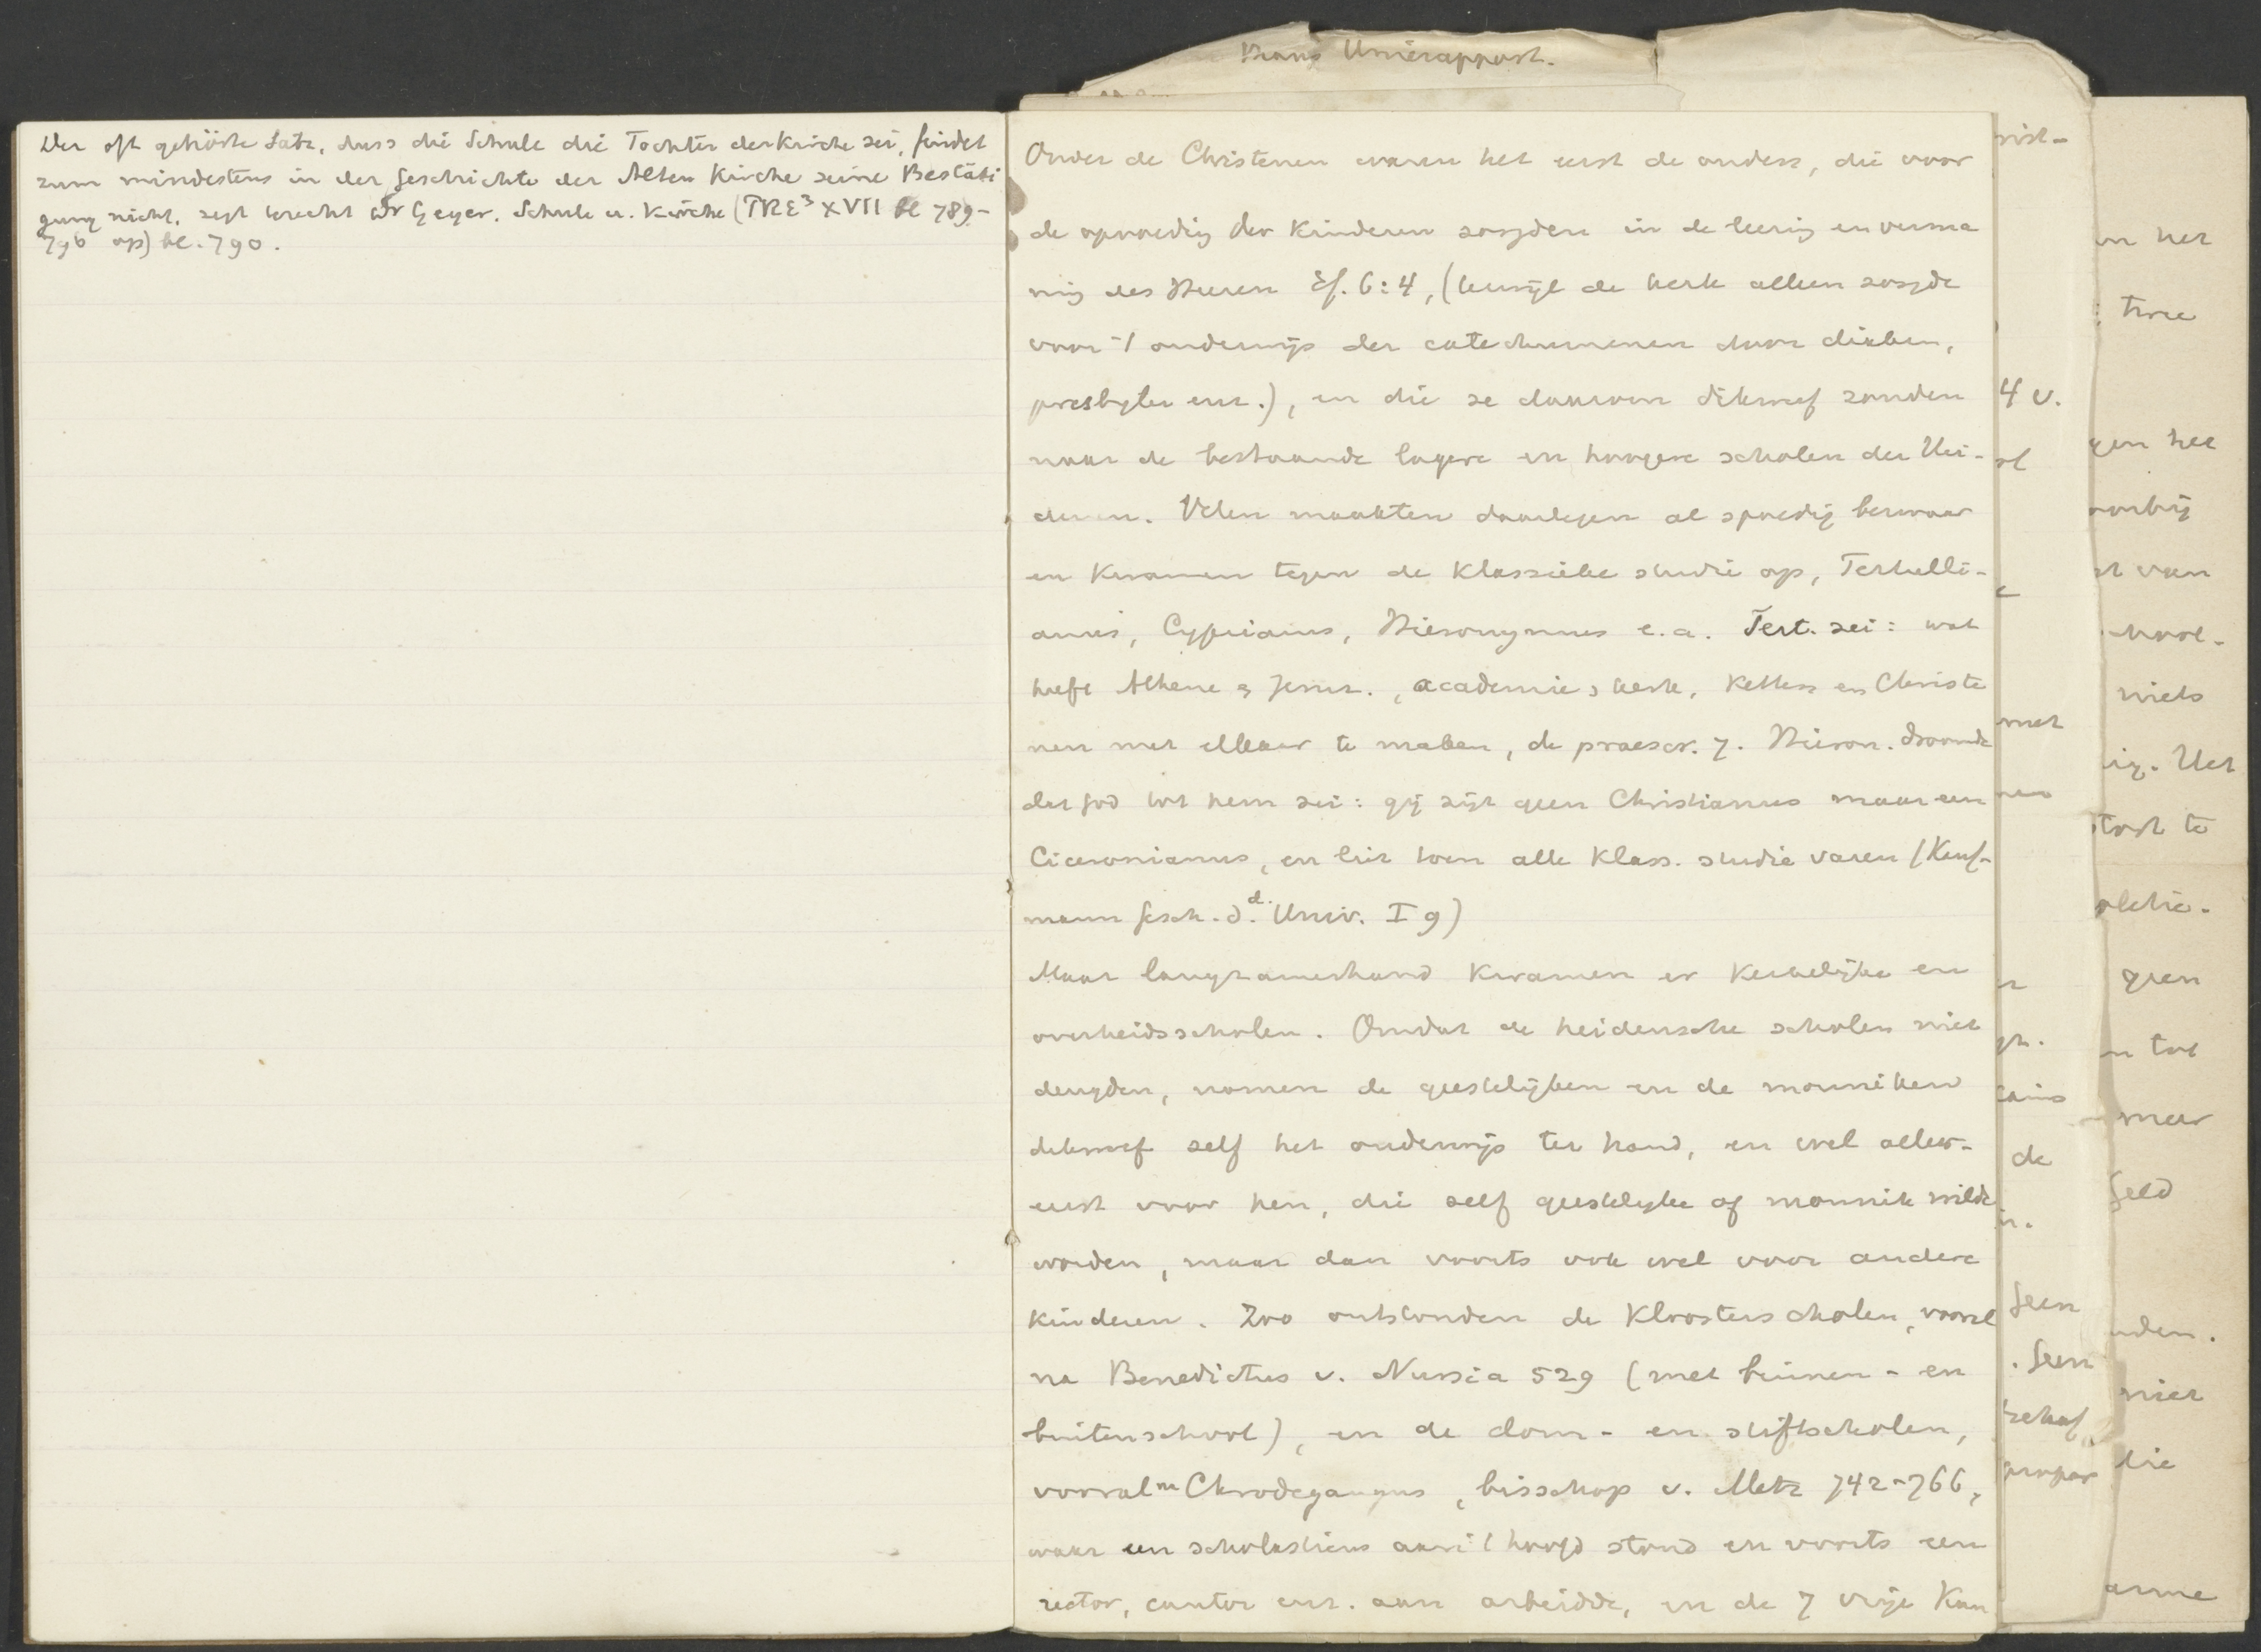 Kraus Unierapport.
Der oft gehörte Satz, dass die Schule die Tochter der Kirche sei, findet
zum mindestens in der Geschichte der Alten Kirche seine Bestäti
gung nicht, zegt terecht Dr Geyer. Schule u. Kirche (PRE³ XVII bl 789-
796 op) bl. 790.
Onder de Christenen waren het eerst de ouders, die voor
de opvoeding der Kinderen zorgden in de leering en verma
ning des Heeren Ef. 6:4, (terwijl de kerk alleen zorgde
voor 't onderwijs der catechumenen door diaken,
presbyter enz.), en die ze daarvoor dikwerf zonden
naar de bestaande lagere en hoogere scholen der Hei-
denen. Velen maakten daartegen al spoedig bezwaar
en kwamen tegen de klassieke studie op, Tertulli-
anus, Cyprianus, Hieronymus e.a. Tert. zei: wat
heeft Athene & Jeruz., academie & kerk, Ketters en Christe
nen met elkaar te maken, de praescr. 7. Hieron. droomde
dat God tot hem zei: gij zijt geen Christianus maar een
Ciceronianus, en liet toen alle klass. studie varen (Kauf-
mann Gesch. d. d. Univ. I 9)
Maar langzamerhand kwamen er kerkelijke en
overheidsscholen. Omdat de heidensche scholen niet
deugden, namen de geestelijken en de monniken
dikwerf zelf het onderwijs ter hand, en wel aller-
eerst voor hen, die zelf geestelijke of monnik wilde
worden, maar dan voorts ook wel voor andere
kinderen. Zoo ontstonden de Kloosterscholen, vooral
na Benedictus v. Nursia 529 (met binnen- en
buitenschool), en de dom- en stiftscholen,
vooral na Chrodegangus, bisschop v. Metz 742-766,
waar een scholasticus aan 't hoofd stond en voorts een
rector, cantor enz. aan arbeidde, en de 7 vrije Kun
4 v.
met
de
Geen
. Geen
van het
twee
gen het
van
niets
Het
te
geen
tot
meer
Geld
niet
die
arme